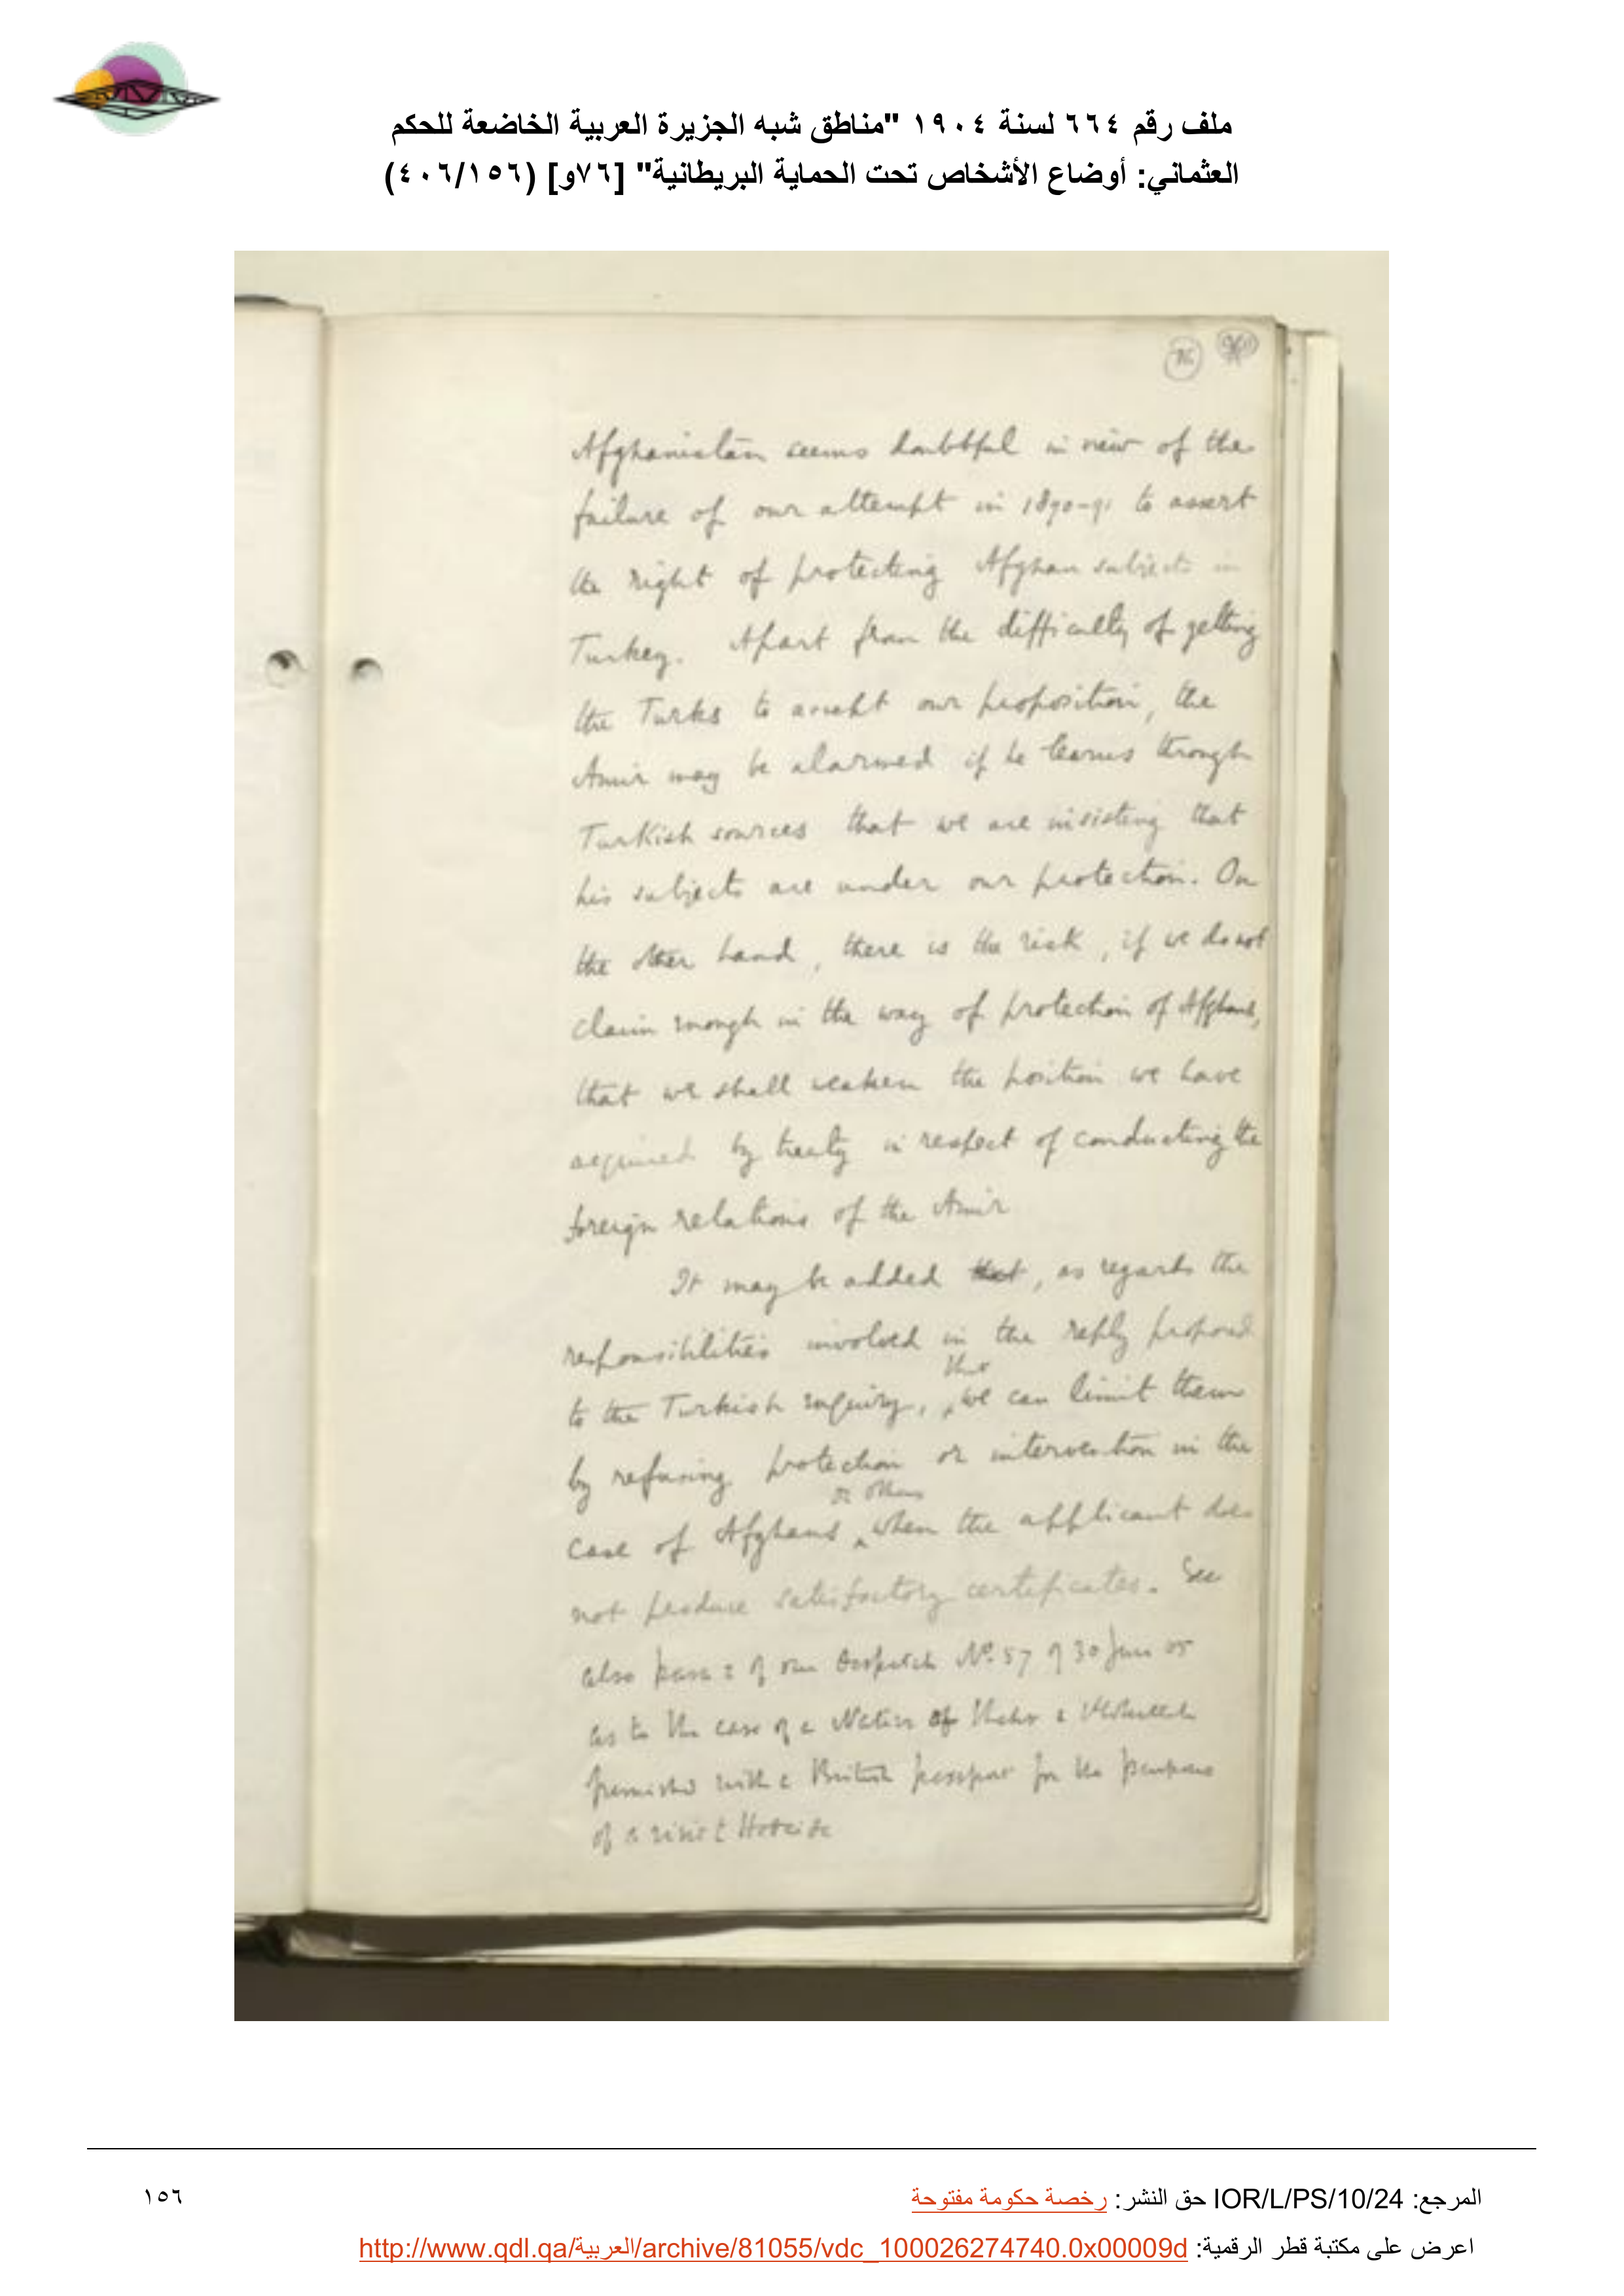 ملف رقم ٦٦٤ لسنة ١٩٠٤ "مناطق شبه الجزيرة العربية الخاضعة للحكم
العثماني: أوضاع الأشخاص تحت الحماية البريطانية" [٧٦و] (٤٠٦/١٥٦)
76
Afghanistan seems doubtful in view of the
failure of our attempt in 1890-91 to assert
the right of protecting Afghan subjects in
Turkey. Apart from the difficulty of getting
the Turks to accept our proposition, the
Amir may be alarmed if he learns through
Turkish sources that we are insisting that
his subjects are under our protection. On
the other hand, there is the risk, if we do not
claim enough in the way of protection of Afghans,
that we shall weaken the position we have
acquired by treaty in respect of conducting the
foreign relations of the Amir
It may be added that, as regards the
responsibilities involved in the reply proposed
to the Turkish inquiry, that we can limit them
by refusing protection or intervention in the
case of Afghans or others when the applicant does
not produce satisfactory certificates. See
also para 2 of our Despatch No. 57 of 30 June 05
as to the case of a Native of &
furnished with a British passport for the purpose
of a visit to Hodeida
المرجع: IOR/L/PS/10/24 حق النشر: رخصة حكومة مفتوحة
١٥٦
اعرض على مكتبة قطر الرقمية: http://www.qdl.qa/العربية/archive/81055/vdc_100026274740.0x00009d